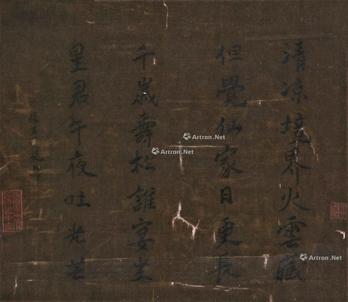 清涼境界火雲藏
但覺仙家日更長
千歲壽松誰宴坐
皇君午夜吐光芒
Artron.Net
Artron.Net
Artron.Net